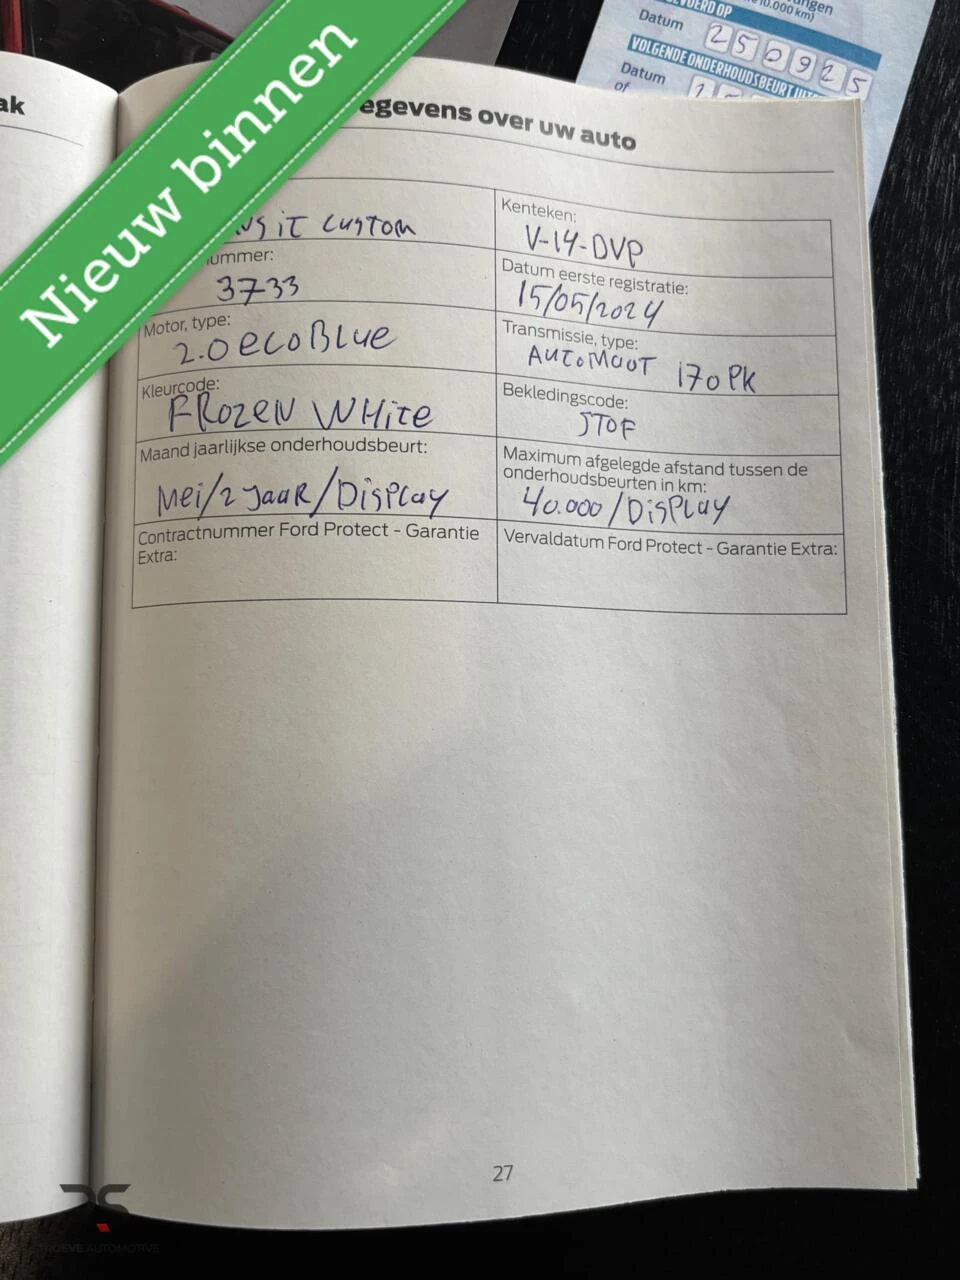 Nieuw binnen
ak
egevens over uw auto
Custom
Kenteken:
V-14-DVP
ummer:
3733
Datum eerste registratie:
15/05/2024
Motor, type:
2.0 ecoBlue
Transmissie, type:
AUTOMAAT 170 PK
Kleurcode:
FROZEN WHITE
Bekledingscode:
STOF
Maand jaarlijkse onderhoudsbeurt:
Mei/2 JaaR/Display
Maximum afgelegde afstand tussen de
onderhoudsbeurten in km:
40.000/Display
Contractnummer Ford Protect - Garantie
Extra:
Vervaldatum Ford Protect - Garantie Extra:
27
10.000 km)
Datum
250925
VOLGENDE ONDERHOUDSBEURT
Datum
of
ROEVE AUTOMOTIVE